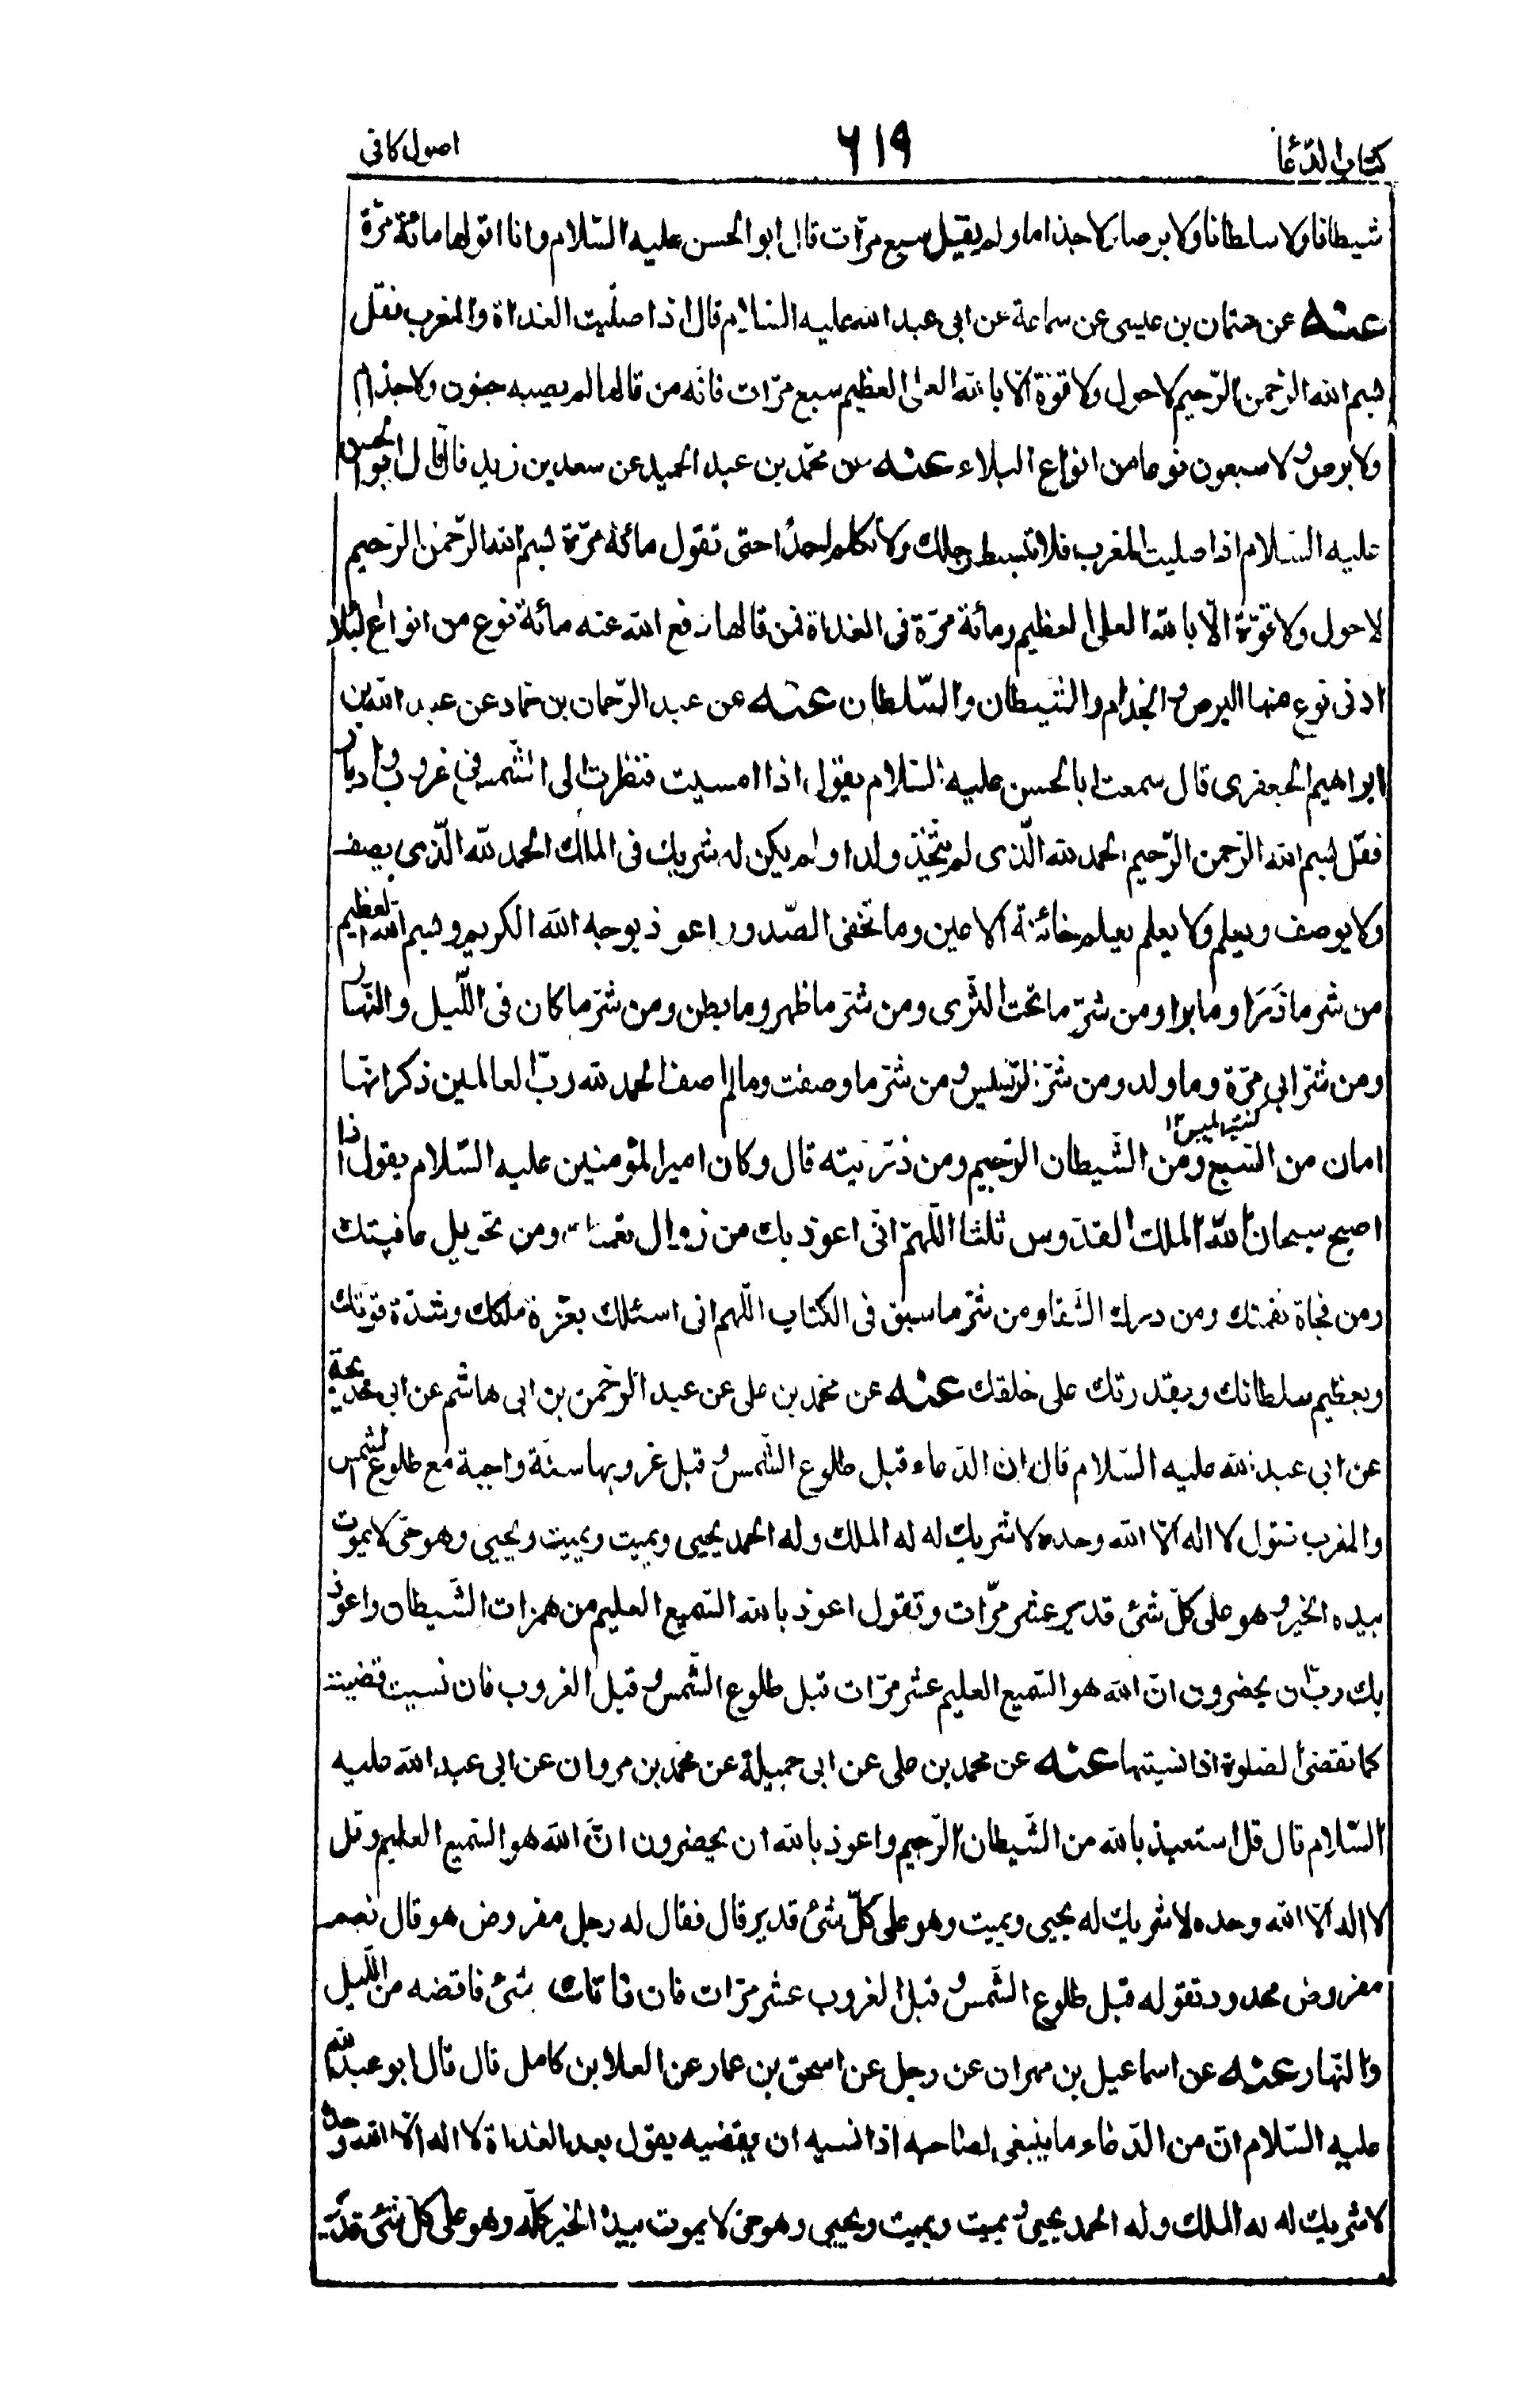 كتاب الدعا
٦١٩
اصول كافى
شيطانا ولا سلطانا ولا برصا ولا جذاما ولم يقيل سبع مرّات قال ابو الحسن عليه السّلام وانا اقولها مائة مرّة
عنه عن عثمان بن عيسى عن سماعة عن ابى عبد الله عليه السّلام قال اذا صلّيت الغداة والمغرب فقل
بسم الله الرّحمن الرّحيم لا حول ولا قوّة الّا بالله العلى العظيم سبع مرّات فانّه من قالها لم يصبه جنون ولا جذام
ولا برص ولا سبعون نوعا من انواع البلاء عنه عن محمّد بن عبد الحميد عن سعد بن زيد قال قال ابو الحسن
عليه السّلام اذا صليت المغرب فلا تبسط رجلك ولا تكلم احدا حتى تقول مائة مرّة بسم الله الرّحمن الرّحيم
لا حول ولا قوّة الّا بالله العلى العظيم ومائة مرّة فى الغداة فمن قالها رفع الله عنه مائة نوع من انواع البلا
ادنى نوع منها البرص والجذام والشيطان والسّلطان عنه عن عبد الرّحمان بن حماد عن عبد الله بن
ابراهيم الجعفرى قال سمعت ابا الحسن عليه السّلام يقول اذا امسيت فنظرت الى الشّمس فى غروب وادبار
فقل بسم الله الرّحمن الرّحيم الحمد لله الّذى لم يتّخذ ولدا ولم يكن له شريك فى الملك الحمد لله الّذى يصف
ولا يوصف ويعلم ولا يعلم يعلم خائنة الاعين وما تخفى الصّدور اعوذ بوجه الله الكريم وبسم الله العظيم
من شر ما ذَرَا وما برا ومن شرّ ما تحت الثرى ومن شرّ ما ظهر وما بطن ومن شرّ ما كان فى اللّيل والنّهار
ومن شرّ ابى مرّة وما ولد ومن شرّ الرّسيس ومن شرّ ما وصفت وما لم اصف الحمد لله ربّ العالمين ذكر انها
كنية ابليس ١٢
امان من السّبع ومن الشّيطان الرّجيم ومن ذرّيته قال وكان امير المؤمنين عليه السّلام يقول اذا
اصبح سبحان الله الملك القدّوس ثلثا اللّهمّ انّى اعوذ بك من زوال نعمتك ومن تحويل عافيتك
ومن فجاة نقمتك ومن درك الشّقا ومن شرّ ما سبق فى الكتاب اللّهم انى اسئلك بعزّة ملكك وشدّة قوّتك
وبعظيم سلطانك وبقدرتك على خلقك عنه عن محمد بن على عن عبد الرّحمن بن ابى هاشم عن ابى خديجة
عن ابى عبد الله عليه السّلام قال ان الدّعاء قبل طلوع الشّمس وقبل غروبها سنّة واجبة مع طلوع الشّمس
والمغرب تقول لا اله الّا الله وحده لا شريك له له الملك وله الحمد يحيى ويميت ويميت ويحيى وهو حىّ لا يموت
بيده الخير وهو على كلّ شئ قدير عشر مرّات وتقول اعوذ بالله السّميع العليم من همزات الشّيطان واعوذ
بك ربّ ان يحضرون انّ الله هو السّميع العليم عشر مرّات قبل طلوع الشّمس وقبل الغروب فان نسيت قضيت
كما تقضى الصّلوة اذا نسيتها عنه عن محمد بن على عن ابى جميلة عن محمّد بن مروان عن ابى عبد الله عليه
السّلام قال قل استعيذ بالله من الشّيطان الرّجيم واعوذ بالله ان يحضرون انّ الله هو السّميع العليم وقل
لا اله الّا الله وحده لا شريك له يحيى ويميت وهو على كلّ شئ قدير قال فقال له رجل مفروض هو قال نعم
مفروض محدود تقوله قبل طلوع الشّمس وقبل الغروب عشر مرّات فان فاتك شئ فاقضه من اللّيل
والنّهار عنه عن اسماعيل بن مهران عن رجل عن اسحق بن عمار عن العلا بن كامل قال قال ابو عبد الله
عليه السّلام انّ من الدّعاء ما ينبغى لصاحبه اذا نسيه ان يقضيه يقول بعد الغداة لا اله الّا الله وحده
لا شريك له له الملك وله الحمد يحيى ويميت ويميت ويحيى وهو حىّ لا يموت بيده الخير كلّه وهو على كلّ شئ قدير